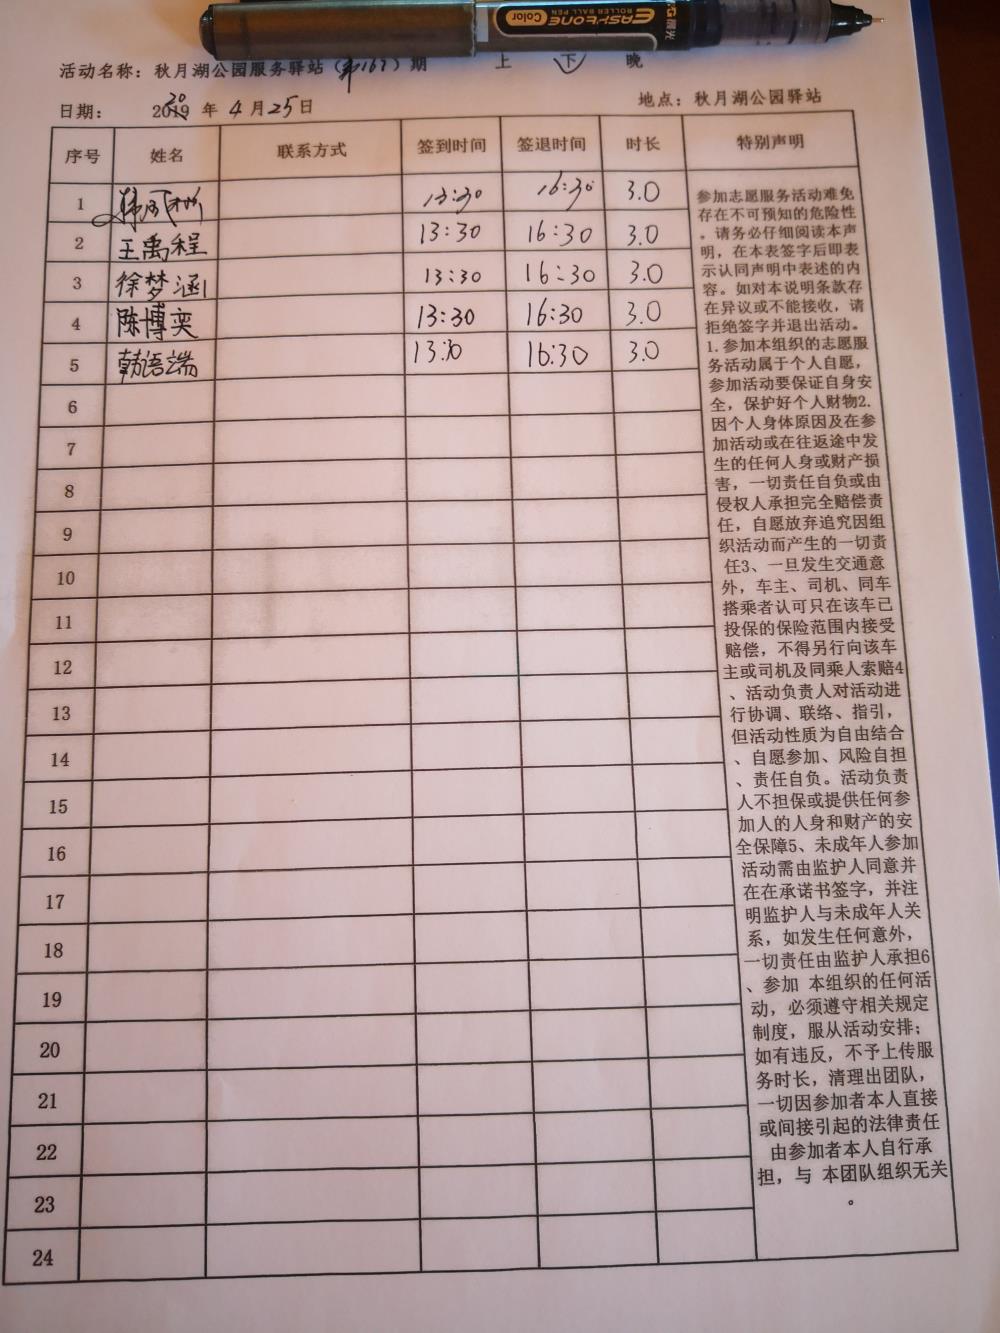 EASYTONE
Color
ROLLER BALL PEN
晨光
活动名称：秋月湖公园服务驿站（第167）期 上 下 晚
日期： 2020 年 4 月 25 日 地点：秋月湖公园驿站
序号 姓名 联系方式 签到时间 签退时间 时长 特别声明
1 13:30 16:30 3.0
2 王禹程 13:30 16:30 3.0
3 徐梦涵 13:30 16:30 3.0
4 陈博奕 13:30 16:30 3.0
5 韩语端 13:30 16:30 3.0
6
7
8
9
10
11
12
13
14
15
16
17
18
19
20
21
22
23
24
参加志愿服务活动难免
存在不可预知的危险性
。请务必仔细阅读本声
明，在本表签字后即表
示认同声明中表述的内
容。如对本说明条款存
在异议或不能接收，请
拒绝签字并退出活动。
1.参加本组织的志愿服
务活动属于个人自愿，
参加活动要保证自身安
全，保护好个人财物2.
因个人身体原因及在参
加活动或在往返途中发
生的任何人身或财产损
害，一切责任自负或由
侵权人承担完全赔偿责
任，自愿放弃追究因组
织活动而产生的一切责
任3、一旦发生交通意
外，车主、司机、同车
搭乘者认可只在该车已
投保的保险范围内接受
赔偿，不得另行向该车
主或司机及同乘人索赔4
、活动负责人对活动进
行协调、联络、指引，
但活动性质为自由结合
、自愿参加、风险自担
、责任自负。活动负责
人不担保或提供任何参
加人的人身和财产的安
全保障5、未成年人参加
活动需由监护人同意并
在在承诺书签字，并注
明监护人与未成年人关
系，如发生任何意外，
一切责任由监护人承担6
、参加 本组织的任何活
动，必须遵守相关规定
制度，服从活动安排；
如有违反，不予上传服
务时长，清理出团队，
一切因参加者本人直接
或间接引起的法律责任
由参加者本人自行承
担，与 本团队组织无关
。